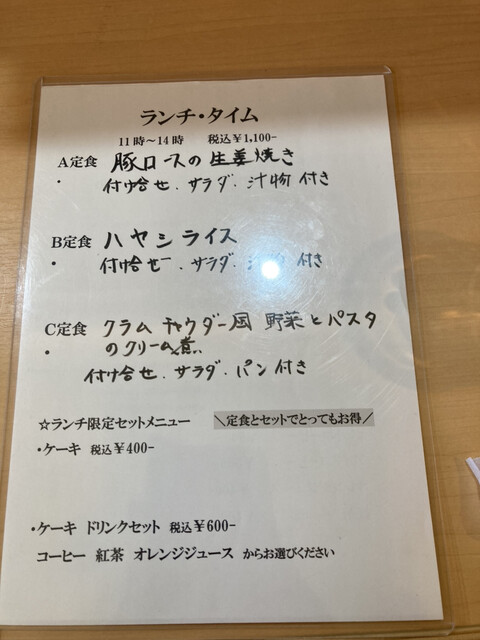 ランチ・タイム
11時～14時 税込￥1,100-
A定食 豚ロースの生姜焼き
・ 付け合せ．サラダ．汁物 付き
B定食 ハヤシライス
・ 付け合せ．サラダ． 付き
C定食 クラム チャウダー風 野菜とパスタ
・ のクリーム煮
付け合せ．サラダ．パン 付き
☆ランチ限定セットメニュー ＼定食とセットでとってもお得／
・ケーキ 税込￥400-
・ケーキ ドリンクセット 税込￥600-
コーヒー 紅茶 オレンジジュース からお選びください